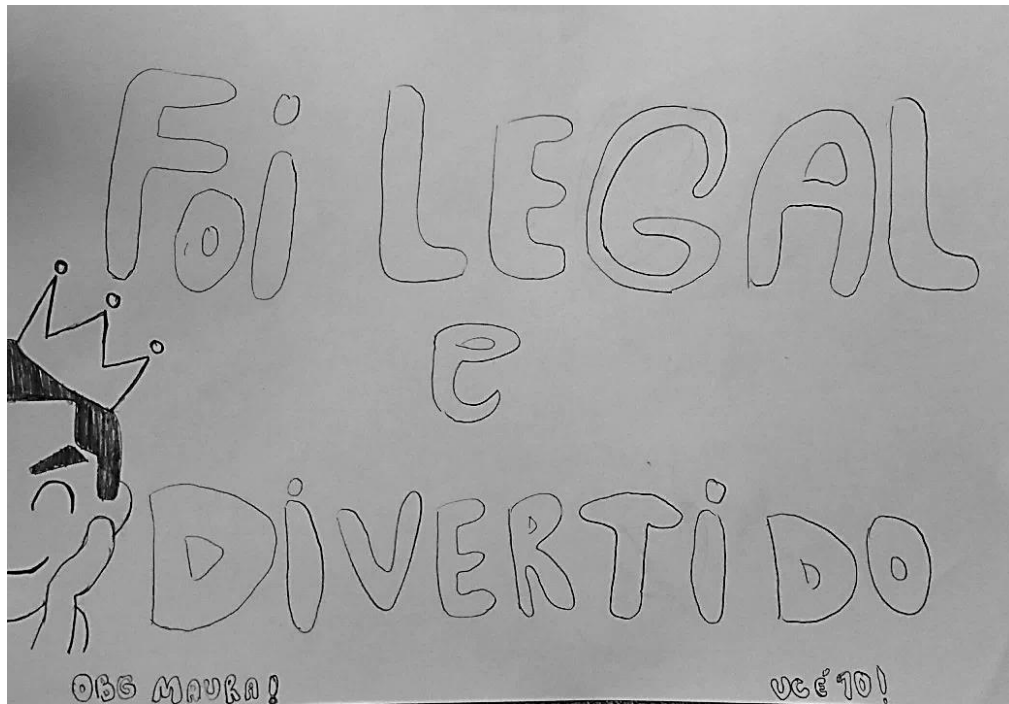 Foi LEGAL
e
DiVERTiDO
OBG MAURA!
VC É 10!